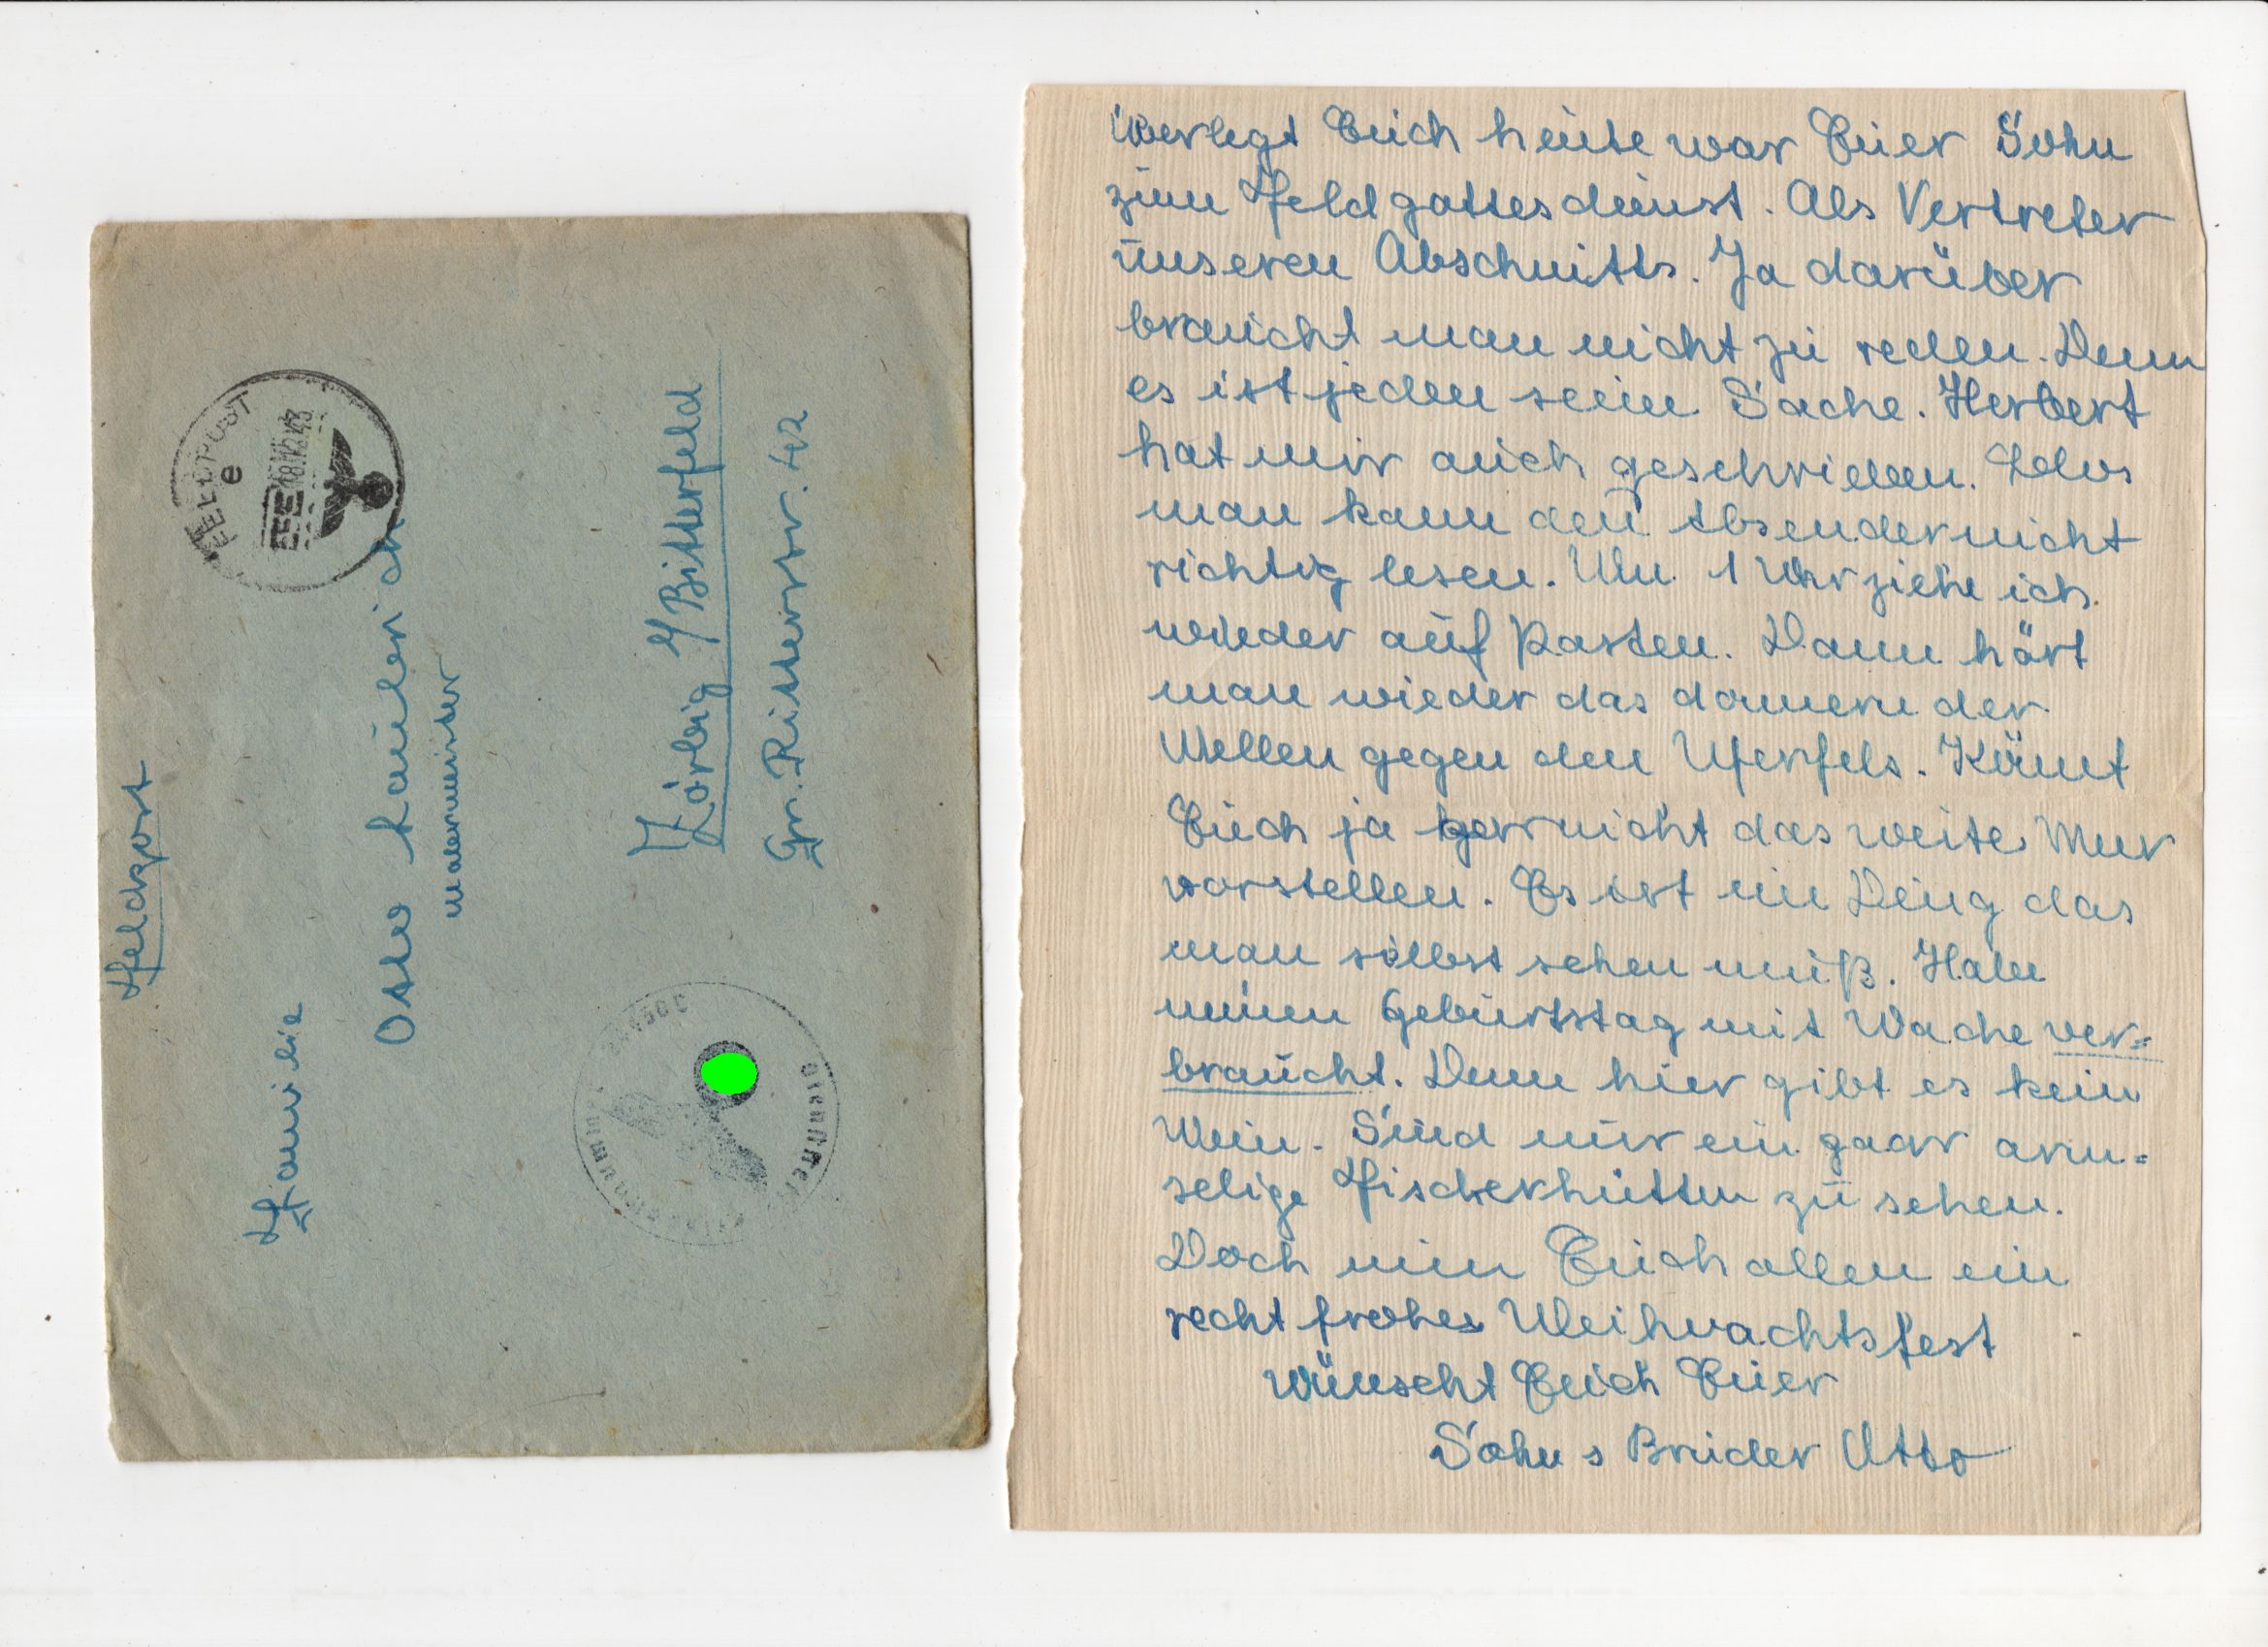 Feldpost
FELDPOST
e
18.12.43
Familie
Otto
Malermeister
Zörbig /Bitterfeld
Gr. Ritterstr. 42
überlegt Euch heute war Euer Sohn
zum Feldgottesdienst. Als Vertreter
unseren Abschnitts. Ja darüber
braucht man nicht zu reden. Denn
es ist jeden seine Sache. Herbert
hat mir auch geschrieben. Aber
man kann den Absender nicht
richtig lesen. Um 1 Uhr ziehe ich
wieder auf Posten. Dann hört
man wieder das donnern der
Wellen gegen den Uferfels. Könnt
Euch ja gar nicht das weite Meer
vorstellen. Es ist ein Ding das
man selbst sehen muß. Habe
meinen Geburtstag mit Wache ver=
braucht. Denn hier gibt es kein
Wein. Sind nur ein paar arm=
selige Fischerhütten zu sehen.
Doch nun Euch allen ein
recht frohes Weihnachtsfest
wünscht Euch Euer
Sohn u Bruder Otto